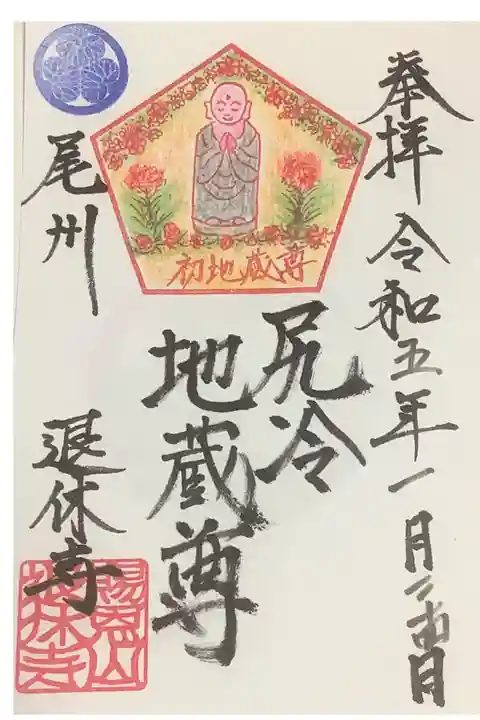 奉拝 令和五年一月二十四日
初地蔵尊
尻冷
地蔵尊
尾州 退休寺
退休寺